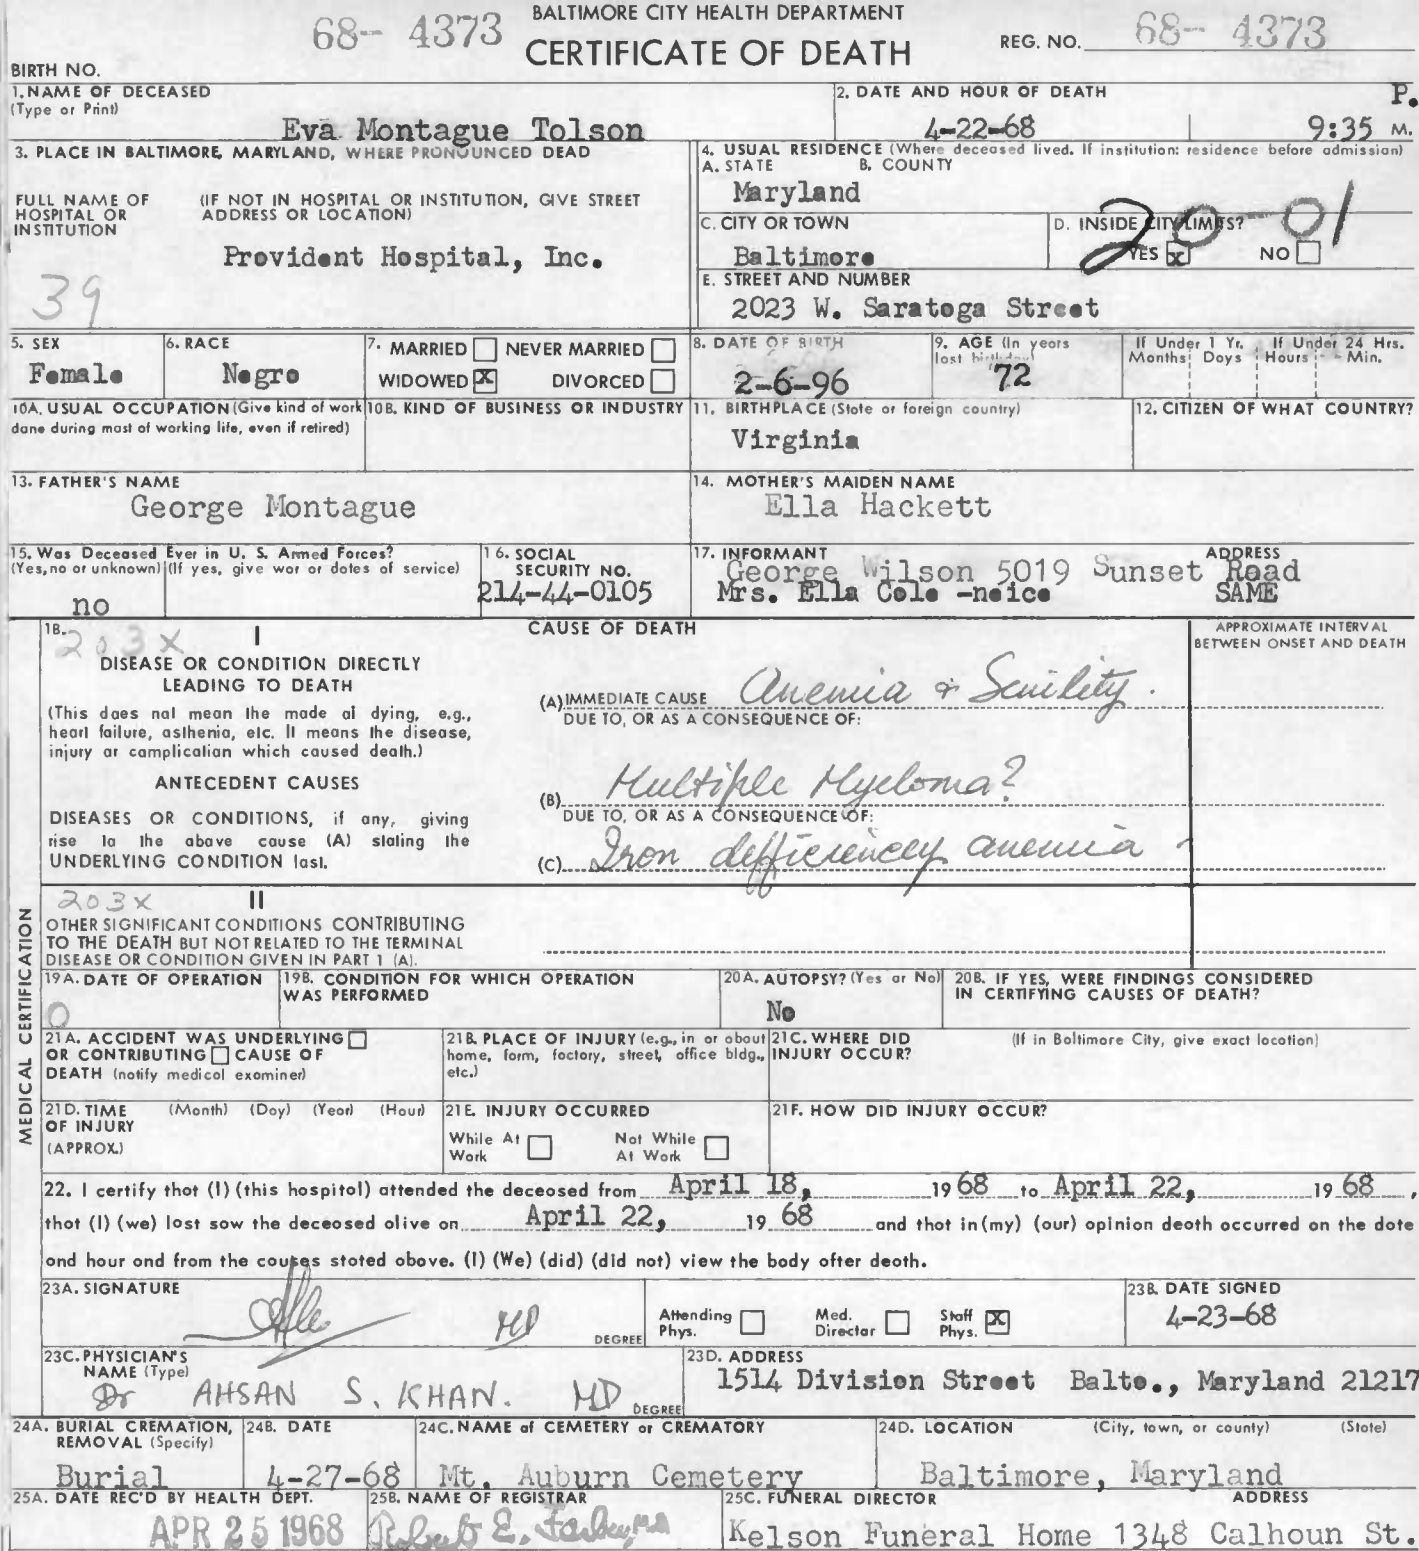 BALTIMORE CITY HEALTH DEPARTMENT
68-- 4373 CERTIFICATE OF DEATH REG. NO. 68-- 4373
BIRTH NO.
1. NAME OF DECEASED
(Type or Print)
Eva Montague Tolson
2. DATE AND HOUR OF DEATH
4-22-68 9:35 P. M.
3. PLACE IN BALTIMORE, MARYLAND, WHERE PRONOUNCED DEAD
FULL NAME OF HOSPITAL OR INSTITUTION
(IF NOT IN HOSPITAL OR INSTITUTION, GIVE STREET ADDRESS OR LOCATION)
Provident Hospital, Inc.
39
4. USUAL RESIDENCE (Where deceased lived. If institution: residence before admission)
A. STATE B. COUNTY
Maryland
C. CITY OR TOWN
Baltimore
D. INSIDE CITY LIMITS?
YES X NO
20-01
E. STREET AND NUMBER
2023 W. Saratoga Street
5. SEX
Female
6. RACE
Negro
7. MARRIED NEVER MARRIED
WIDOWED X DIVORCED
8. DATE OF BIRTH
2-6-96
9. AGE (In years last birthday)
72
If Under 1 Yr. If Under 24 Hrs.
Months Days Hours Min.
10A. USUAL OCCUPATION (Give kind of work done during most of working life, even if retired)
10B. KIND OF BUSINESS OR INDUSTRY
11. BIRTHPLACE (State or foreign country)
Virginia
12. CITIZEN OF WHAT COUNTRY?
13. FATHER'S NAME
George Montague
14. MOTHER'S MAIDEN NAME
Ella Hackett
15. Was Deceased Ever in U. S. Armed Forces?
(Yes, no or unknown) (If yes, give war or dates of service)
no
16. SOCIAL SECURITY NO.
214-44-0105
17. INFORMANT ADDRESS
George Wilson 5019 Sunset Road
Mrs. Ella Cole -neice SAME
18. 203X I
DISEASE OR CONDITION DIRECTLY
LEADING TO DEATH
(This does not mean the mode of dying, e.g.,
heart failure, asthenia, etc. It means the disease,
injury or complication which caused death.)
ANTECEDENT CAUSES
DISEASES OR CONDITIONS, if any, giving
rise to the above cause (A) stating the
UNDERLYING CONDITION last.
CAUSE OF DEATH
APPROXIMATE INTERVAL
BETWEEN ONSET AND DEATH
(A) IMMEDIATE CAUSE Anemia & Senility.
DUE TO, OR AS A CONSEQUENCE OF:
(B) Multiple Myeloma?
DUE TO, OR AS A CONSEQUENCE OF:
(C) Iron defficiencey anemia
203X II
OTHER SIGNIFICANT CONDITIONS CONTRIBUTING
TO THE DEATH BUT NOT RELATED TO THE TERMINAL
DISEASE OR CONDITION GIVEN IN PART 1 (A).
MEDICAL CERTIFICATION
19A. DATE OF OPERATION
0
19B. CONDITION FOR WHICH OPERATION
WAS PERFORMED
20A. AUTOPSY? (Yes or No)
No
20B. IF YES, WERE FINDINGS CONSIDERED
IN CERTIFYING CAUSES OF DEATH?
21A. ACCIDENT WAS UNDERLYING
OR CONTRIBUTING CAUSE OF
DEATH (notify medical examiner)
21B. PLACE OF INJURY (e.g., in or about
home, farm, factory, street, office bldg.,
etc.)
21C. WHERE DID INJURY OCCUR?
(If in Baltimore City, give exact location)
21D. TIME OF INJURY (APPROX.)
(Month) (Day) (Year) (Hour)
21E. INJURY OCCURRED
While At Work Not While At Work
21F. HOW DID INJURY OCCUR?
22. I certify that (I) (this hospital) attended the deceased from April 18, 1968 to April 22, 1968,
that (I) (we) last saw the deceased alive on April 22, 1968 and that in (my) (our) opinion death occurred on the date
and hour and from the causes stated above. (I) (We) (did) (did not) view the body after death.
23A. SIGNATURE
MD DEGREE
Attending Phys. Med. Director Staff Phys. X
23B. DATE SIGNED
4-23-68
23C. PHYSICIAN'S NAME (Type)
Dr AHSAN S. KHAN. MD DEGREE
23D. ADDRESS
1514 Division Street Balto., Maryland 21217
24A. BURIAL CREMATION, REMOVAL (Specify)
Burial
24B. DATE
4-27-68
24C. NAME of CEMETERY or CREMATORY
Mt. Auburn Cemetery
24D. LOCATION (City, town, or county) (State)
Baltimore, Maryland
25A. DATE REC'D BY HEALTH DEPT.
APR 25 1968
25B. NAME OF REGISTRAR
Robert E. Farber, MD
25C. FUNERAL DIRECTOR ADDRESS
Kelson Funeral Home 1348 Calhoun St.